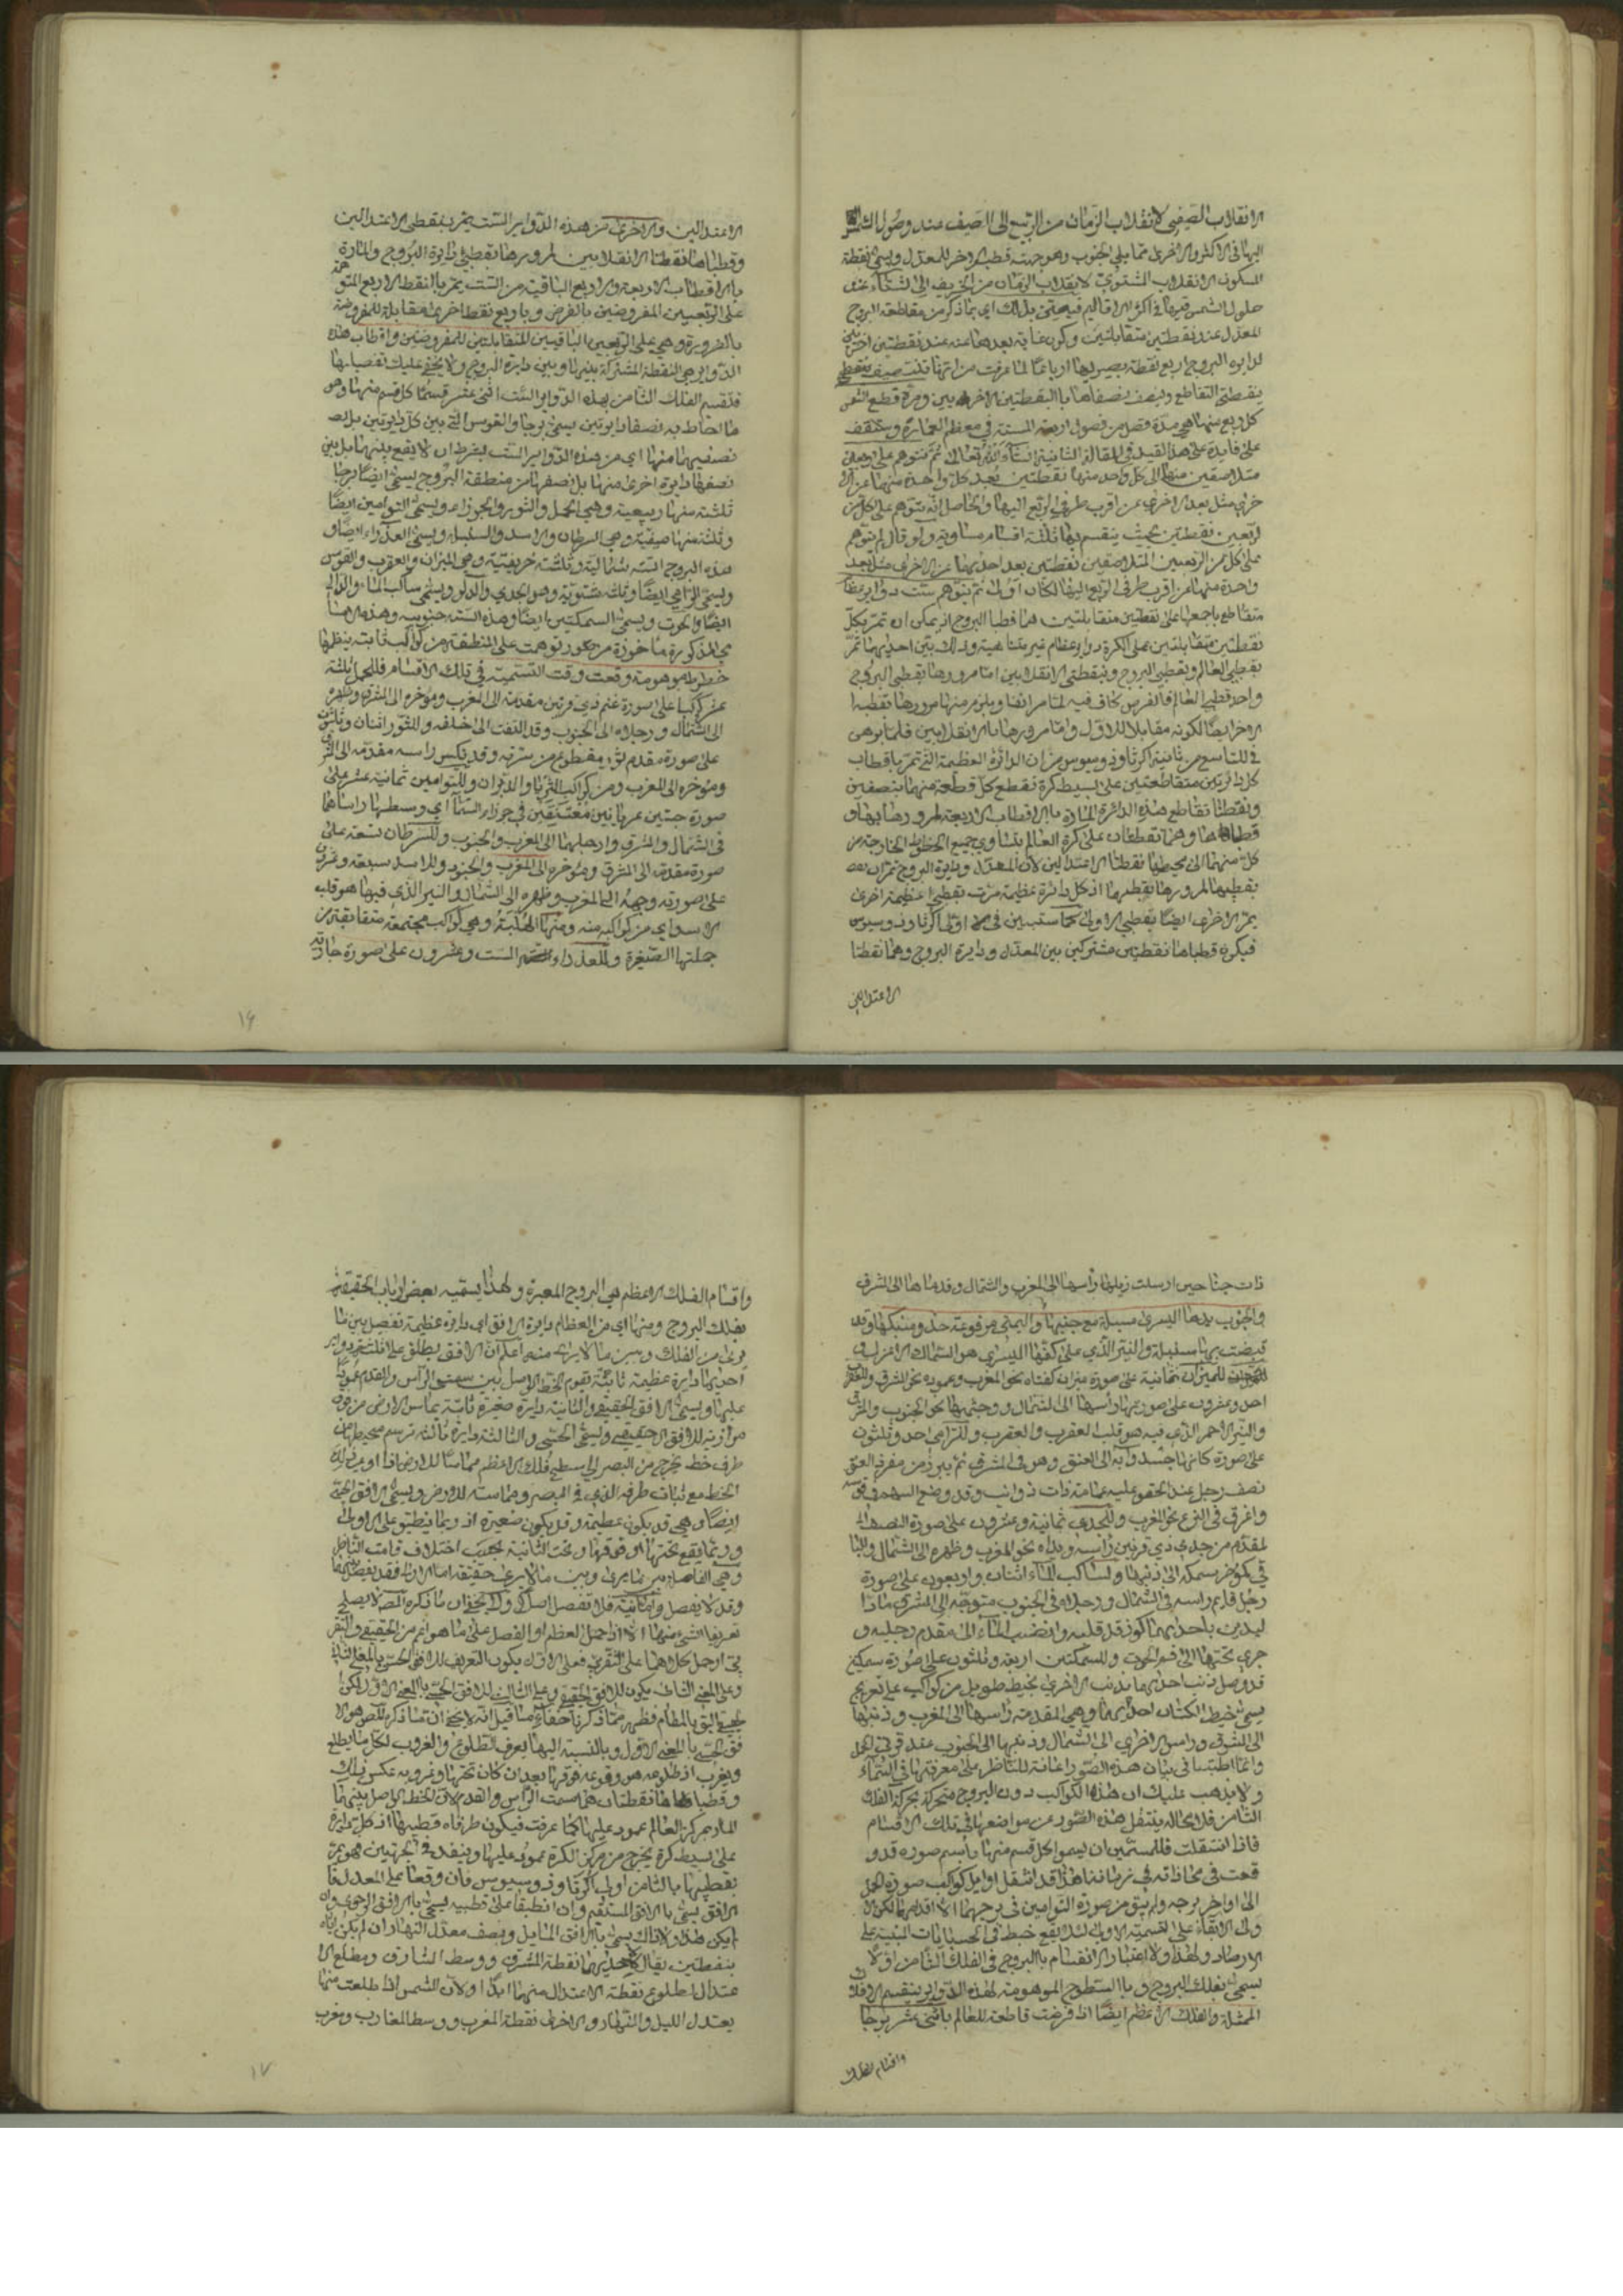 الانقلاب الصيفي لانقلاب الزمان من الربيع الى الصيف عند وصول الشمس
اليها في الاكثر والاخرى مما يلي الجنوب وهو جهت قطب الاخر للمعدل ويسمى نقطة
الانقلاب الشتوي لانقلاب الزمان من الخريف الى الشتاء عند
حلول الشمس فيها في اكثر الاقاليم فيتعين بذلك اي بما ذكر من مقاطعة البروج
المعدل على نقطتين متقابلتين وكون غاية بعدها عنه عند نقطتين اخريين
لدايرة البروج اربع نقطة يصير بها ارباعا لما عرفت من انها
بنقطتي التقاطع وينصف نصفاها بالنقطتين الاخريين ومدة قطع الشمس
كل ربع منها هي مدة فصل من فصول اربعة السنة في معظم العمارة وستقف
على فايدة هذا القيد في المقالة الثانية ان شاء الله تعالى ثم نتوهم على ربعين
متلاصقين منها الى كل واحد منها نقطتين بعد كل واحدة منهما عن الا
خرى مثل بعد الاخرى عن اقرب طرفي الربع اليها والحاصل انه نتوهم على كل من
الربعين نقطتين بحيث ينقسم بها ثلثة اقسام متساوية ولو قال ثم نتوهم
على كل من الربعين المتلاصقين نقطتين بعد احديهما عن الاخرى مثل بعد
واحدة منهما من اقرب طرفي الربع اليها لكان اولى ثم نتوهم ست دواير عظام
متقاطع باجمعها على نقطتين متقابلتين هما قطبا البروج اذ يمكن ان تمر بكل
نقطتين متقابلتين على الكرة دواير عظام غير متناهية وذلك بين احديها تمر
بقطبي العالم وبقطبي البروج وبنقطتي الانقلابين اما مرورها بقطبي البروج
واحد قطبي العالم فالفرض كاف فيه لما مر انفا ويلزم منها مرورها بقطب
الاخر ايضا لكونه مقابلا للاول واما مرورها بالانقلابين فلما برهن
في التاسع من ثانية اكر ثاوذوسيوس من ان الدائرة العظيمة التي تمر باقطاب
كل دائرتين متقاطعتين على بسيط كرة تقطع كل قطعة منهما بنصفين
ونقطتا تقاطع هذه الدائرة المارة بالاقطاب الاربعة لمرورها بها و
قطباها وهما نقطتان على كرة العالم يتساوي جميع الخطوط الخارجة من
كل منهما الى محيطها نقطتا الاعتدالين لان المعدل ودايرة البروج تمران
بقطبيها لمرورها بقطبيهما اذ كل دائرة عظيمة مرت بقطبي عظيمة اخرى
يمر الاخرى ايضا بقطبي الاولى كما ستبين في اولى اكر ثاوذوسيوس
فيكون قطباها نقطتين مشتركين بين المعدل ودايرة البروج وهما نقطتا
الاعتدالين
الاعتدالين والاخرى من هذه الدواير الست يمر بنقطتي الاعتدالين
وقطباها نقطتا الانقلابين لمرورها بقطبي دايرة البروج والمارة
بالاقطاب الاربعة والاربع الباقية من الست يمر بالنقط الاربع المتوهمة
على الربعين المفروضين بالفرض وباربع نقط اخرى مقابلة للمفروضة
بالضرورة وهي على الربعين الباقيين المتقابلتين للمفروضين واقطاب هذه
الدواير هي النقطة المشتركة بينها وبين دايرة البروج ولا يخفى عليك تفصيلها
فينقسم الفلك الثامن بهذه الدواير الست اثنى عشر قسما كل قسم منها وهو
ما احاط به نصفا دايرتين يسمى برجا والقوس التي بين كل دايرتين بل بين
نصفيهما منها اي من هذه الدواير الست بشرط ان لا يقع بينهما بل بين
نصفها دايرة اخرى منها بل نصفها من منطقة البروج يسمى ايضا برجا
ثلثة منها ربيعية وهي الحمل والثور والجوزاء ويسمى التوامين ايضا
وثلثة منها صيفية وهي السرطان والاسد والسنبلة ويسمى العذراء ايضا و
هذه البروج الستة شمالية وثلثة خريفية وهي الميزان والعقرب والقوس
ويسمى الرامي ايضا وثلثة شتوية وهو الجدي والدلو ويسمى ساكب الماء والدالي
ايضا والحوت ويسمى السمكتين ايضا وهذه الستة جنوبية وهذه الاسامي
المذكورة ماخوذة من صور توهمت على المنطقة من كواكب ثابتة ينظمها
خطوط موهومة وقعت وقت التسمية في تلك الاقسام فللحمل ثلثة
عشر كوكبا على صورة غنم ذي قرنين مقدمه الى المغرب وموخره الى المشرق وظهره
الى الشمال ورجلاه الى الجنوب وقد التفت الى خلفه وللثور اثنان وثلثون
على صورة مقدم ثور مقطوع من سرته وقد نكس راسه مقدمه الى المشرق
وموخره الى المغرب ومن كواكبه الثريا والدبران وللتوامين ثمانية عشر على
صورة صبيين عريانين معتنقين في جوزاء السماء اي وسطها راساهما
في الشمال والمشرق وارجلهما الى المغرب والجنوب وللسرطان تسعة على
صورة مقدمه الى المشرق وموخره الى المغرب والجنوب وللاسد سبعة وعشرون
على صورته وجهه الى المغرب وظهره الى الشمال والنير الذي فيها هو قلب
الاسد اي من كواكبه منه ومنها الهلبة وهي كواكب مجتمعة متقاربة من
جملتها الضفيرة وللعذراء الست وعشرون على صورة جارية
١٦
ذات جناحين ارسلت ذيلها راسها الى المغرب والشمال وقدماها الى المشرق
والجنوب يدها اليسرى مسبلة مع جنبها واليمنى مرفوعة حذو منكبها وقد
قبضت بها سنبلة والنير الذي على كفها اليسرى هو السماك الاعزل
للميزان ثمانية على صورة ميزان كفتاه نحو المغرب وعموده نحو المشرق وللعقرب
احد وعشرون على صورتها راسها الى الشمال ووجهها نحو الجنوب والمشرق
والنير الاحمر الذي فيه هو قلب العقرب والعقرب وللرامي احد وثلثون
على صورة كانها جسد دابة الى العنق وهو في المشرق ثم يبرز من مفرز العنق
نصف رجل عند الحقو عليه عمامة ذات ذوائب وقد وضع السهم في قوسه
واغرق في النزع نحو المغرب وللجدي ثمانية وعشرون على صورة النصف ا
لمقدم من جدي ذي قرنين راسه ويداه نحو المغرب وظهره الى الشمال والبا
قي كموخر سمكة الى ذنبها ولساكب الماء اثنان واربعون على صورة
رجل قايم راسه في الشمال ورجلاه في الجنوب متوجه الى المشرق مادا
ليدين باحديهما كوز قد قلبه وانصب الماء الى مقدم رجليه و
جرى تحتها الى فم الحوت وللسمكتين اربعة وثلثون على صورة سمكتين
قد وصل ذنب احديهما بذنب الاخرى بخيط طويل من كواكب على تعريج
يسمى خيط الكتان احديهما وهي المقدمة راسها الى المغرب وذنبها
الى المشرق وراس الاخرى الى الشمال وذنبها الى الجنوب عند قرني الحمل
وانما اطنبنا في بيان هذه الصور اعانة للناظر على معرفتها في السماء
ولا يذهب عليك ان هذه الكواكب دون البروج متحركة بحركة الفلك
الثامن فلا محالة ينتقل هذه الصور عن مواضعها في تلك الاقسام
فاذا انتقلت فللمسمين ان يسموا كل قسم منها باسم صورة قد و
قعت في محاذاته في زماننا هذا قد انتقل اوايل كواكب صورة الحمل
الى اواخر برجه ولم يبق من صورة التوامين في برجهما الا اقدامهما لكن الا
ولى الابقاء على التسمية الاولى لئلا يقع خبط في الحسابات المبنية على
الارصاد ولهذا ولاعتبار الانقسام بالبروج في الفلك الثامن اولا
يسمى بفلك البروج وبالسطوح الموهومة لهذه الدواير ينقسم الافلاك
الممثلة والفلك الاعظم ايضا اذ فرضت قاطعة للعالم باثنى عشر برجا
واقسام الفلك
واقسام الفلك الاعظم هي البروج المعتبرة ولهذا يسميه بعض ارباب الحقيقة
بفلك البروج ومنها اي من العظام دايرة الافق اي دايرة عظيمة تفصل بين ما
يرى من الفلك وبين ما لا يرى منه اعلم ان الافق يطلق على ثلث دواير
احديها دايرة عظيمة ثابتة يقوم الخط الواصل بين سمتي الراس والقدم عمودا
عليها ويسمى الافق الحقيقي والثانية دايرة صغيرة ثابتة تماس الارض من فوق
موازية للافق الحقيقي ويسمى الحسي والثالثة دايرة ثابتة ترسم محيطها من
طرف خط يخرج من البصر الى سطح فلك الاعظم مماسا للارض اذا ادير ذلك
الخط مع ثبات طرفه الذي في البصر ومماسته للارض ويسمى الافق الحسي
ايضا وهي قد يكون عظيمة وقد يكون صغيرة اذ ربما ينطبق على الاولى
وربما يقع تحتها او فوقها وتحت الثانية بحسب اختلاف قامت الناظر
وهي الفاصلة بين ما يرى وبين ما لا يرى حقيقة اما الاولى فقد تفصل بينهما
وقد لا يفصل والثانية فلا تفصل اصلا ولا يخفى ان ما ذكره المصـ لا يصلح
تعريفا لشي منهما الا اذا حمل العظم او الفصل على ما هو اعم من الحقيقي والتقر
يبي او حمل كلاهما على التقريبي فعلى الاول يكون التعريف للافق الحسي بالمعنى الثاني
وعلى المعنى الثاني يكون للافق الحقيقي وعلى الثالث للافق الحسي بالمعنى الاول لكن
وبالنسبة اليها يعرف الطلوع والغروب لكل ما يطلع
ويغرب اذ طلوعه هو وقوعه فوقها بعد ان كان تحتها وغروبه عكس ذلك
وقطباها نقطتان هما سمت الراس والقدم لان الخط الواصل بينهما
المار بمركز العالم عمود عليها كما عرفت فيكون طرفاه قطبيها اذ كل دايرة
على بسيط كرة يخرج من مركز الكرة عمود عليها وينفذ في الجهتين فهو يمر
بقطبيها بالثامن اولى اكر ثاوذوسيوس فان وقعا على المعدل فا
لافق يسمى بالافق المستقيم وان انطبقا على قطبيه يسمى بالافق الرحوي وان
لم يكن هذا ولا ذاك يسمى بالافق المايل وينصف معدل النهار ان لم يكن اياه
بنقطتين يقال لاحديهما نقطة المشرق ووسط المشارق ومطلع الا
عتدال لطلوع نقطة الاعتدال منها ابدا ولان الشمس اذا طلعت منها
يعتدل الليل والنهار والاخرى نقطة المغرب ووسط المغارب ومغرب
١٧